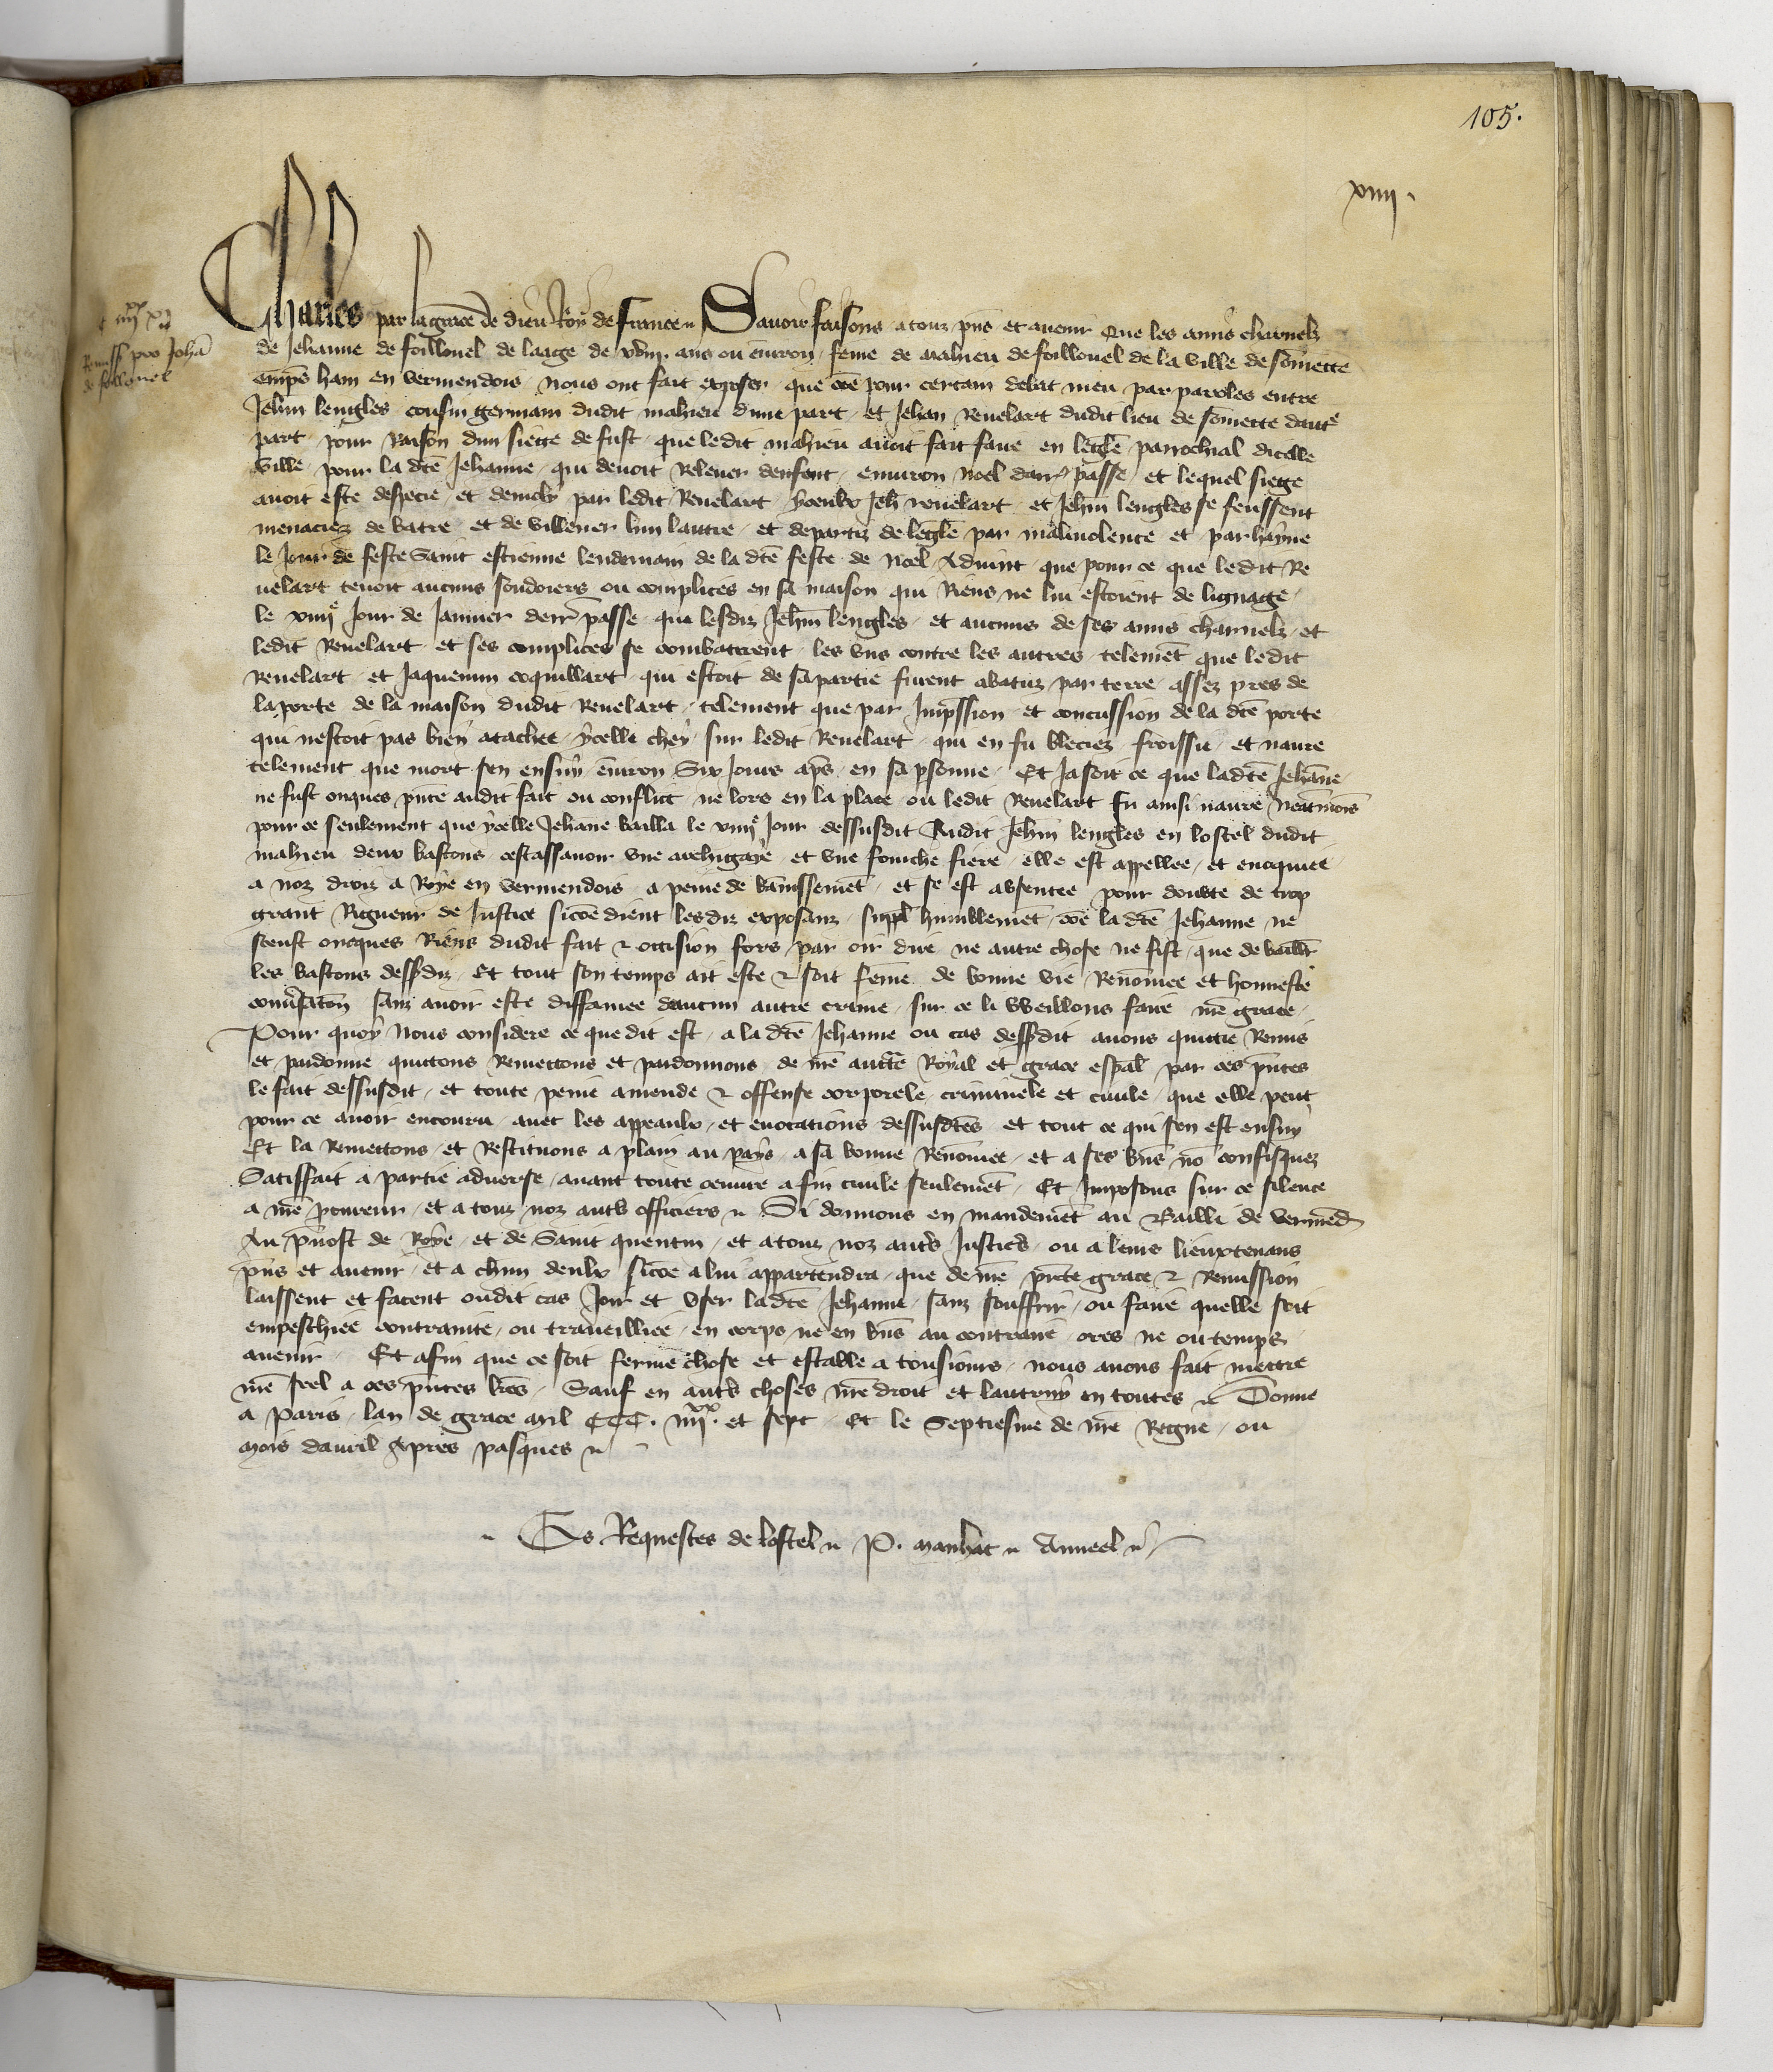 105.
xiiii.
Remissio pro Johã
de foillouel
Charles par la grace de dieu Roy de France. Sauoir faisons a touz pñs et auenir Que les amis charnelz
de Jehanne de foillouel de laage de xviij. ans ou enuiron, feme de mahieu de foillouel de la ville de somette
empres ham en vermendois, nous ont fait exposer, que cõe pour certain debat meu par paroles entre
Jehan lengles cousin germain dudit mahieu dune part, et Jehan Reuelart dudit lieu de somette dautˢ
part, pour Raison dun siege de fust, que ledit mahieu auoit fait faire en leglẽ parrochial dicelle
ville, pour la dcẽ Jehanne, qui deuoit Releuer denfant, enuiron Noel derr passe, et lequel siege
auoit este despecie et demoly par ledit Reuelart, yceulx Jeh reuelart, et Jehan lengles se feussent
menaciez de batre et de villener lun lautre, et departiz de leglẽ par maliuolence et par hayne
le Jour de feste Saint estienne lendemain de la dcẽ feste de Noel, Aduint que pour ce que ledit Re
uelart tenoit aucuns soudoiers ou complices en sa maison qui Riens ne lui estoient de lignage,
le xiiiiᵉ Jour de Januier derr passe, que lesdiz Jehan lengles, et aucuns de ses amis charnelz, et
ledit Reuelart et ses complices se combatirent les vns contre les autres, telemẽt que ledit
Reuelart et Jaquemin coquillart qui estoit de sa partie furent abatuz par terre, assez pres de
la porte de la maison dudit Reuelart, telement que par Impssion et concussion de la dcẽ porte
qui nestoit pas bien atachee, ycelle chey sur ledit Reuelart, qui en fu bleciez froissie et naure
telement que mort sen ensuy enuiron Six Jours apˢ en sa psonne, Et Ja soit ce que la dcẽ Jehãne
ne fust onques pñte audit fait ou conflict ne lors en la place ou ledit Reuelart fu ainsi naure Neãtmois
pour ce seulement que ycelle Jehane bailla le xiiiiᵉ Jour dessusdit Audit Jehan lengles en lostel dudit
mahieu deux bastons, cestassauoir vne archigaye et vne fouiche fiere, elle est appellee, et enquise
a noz droiz a Roye en vermendois a peine de banissemẽt, et se est absentee pour doubte de trop
grant Rigueur de Justice sicõe dient lesdiz exposanz, suppl humblemẽt, cõe la dcẽ Jehanne ne
sceust onques Riens dudit fait & occision fors par oir dire ne autre chose ne fist, que de baillr
les bastons dessdiz, Et tout son temps ait este & soit feme de bonne vie Renommee et honneste
conũsaton sanz auoir este diffamee daucun autre crime, sur ce li vueillons faire nrẽ grace,
Pour quoy Nous considere ce que dit est, a la dcẽ Jehanne ou cas dessdit auons quitte Remis
et pardonne quittons Remettons et pardonnons de nrẽ auctẽ Royal et grace espal par ces pñtes
le fait dessusdit, et toute peine amende & offense corporele criminele et ciuile, que elle peut
pour ce auoir encouru, auec les appeaulx, et euocations dessusdcẽs et tout ce qui sen est ensuy
Et la Remettons et Restituons a plain au pays, a sa bonne Renommee, et a ses bñs nõ confisquez
Satisffait a partie aduerse, auant toute oeuure a fin ciuile seulemẽt, Et Imposons sur ce silence
a nrẽ procureur, et a touz noz autˢ officiers. Si donnons en mandemẽt au Bailli de vermẽd
Au puost de Roye et de Saint quentin, et a touz noz autˢ Justicˢ, ou a leurs lieuxtenans
pñs et auenir, et a chũn deulx sicõe a lui appartendra, que de nrẽ pñte grace & Remission
laissent et facent oudit cas Joir et vser la dcẽ Jehanne, sanz souffrir, ou faire quelle soit
empeschiee contrainte, ou traueilliee, en corps ne en bñs au contraire, ores ne ou temps
auenir, Et afin que ce soit ferme chose et estable a tousiours, nous auons fait mettre
nrẽ seel a ces pñtes lrẽs, Sauf en autˢ choses nrẽ droit et lautruy en toutes. Donne
a Paris, lan de grace mil CCC. iiij.ˣˣ et sept, Et le Septiesme de nrẽ Regne, ou
mois dauril apres pasques.
Es Requestes de lostel. P. manhac. Anneel.